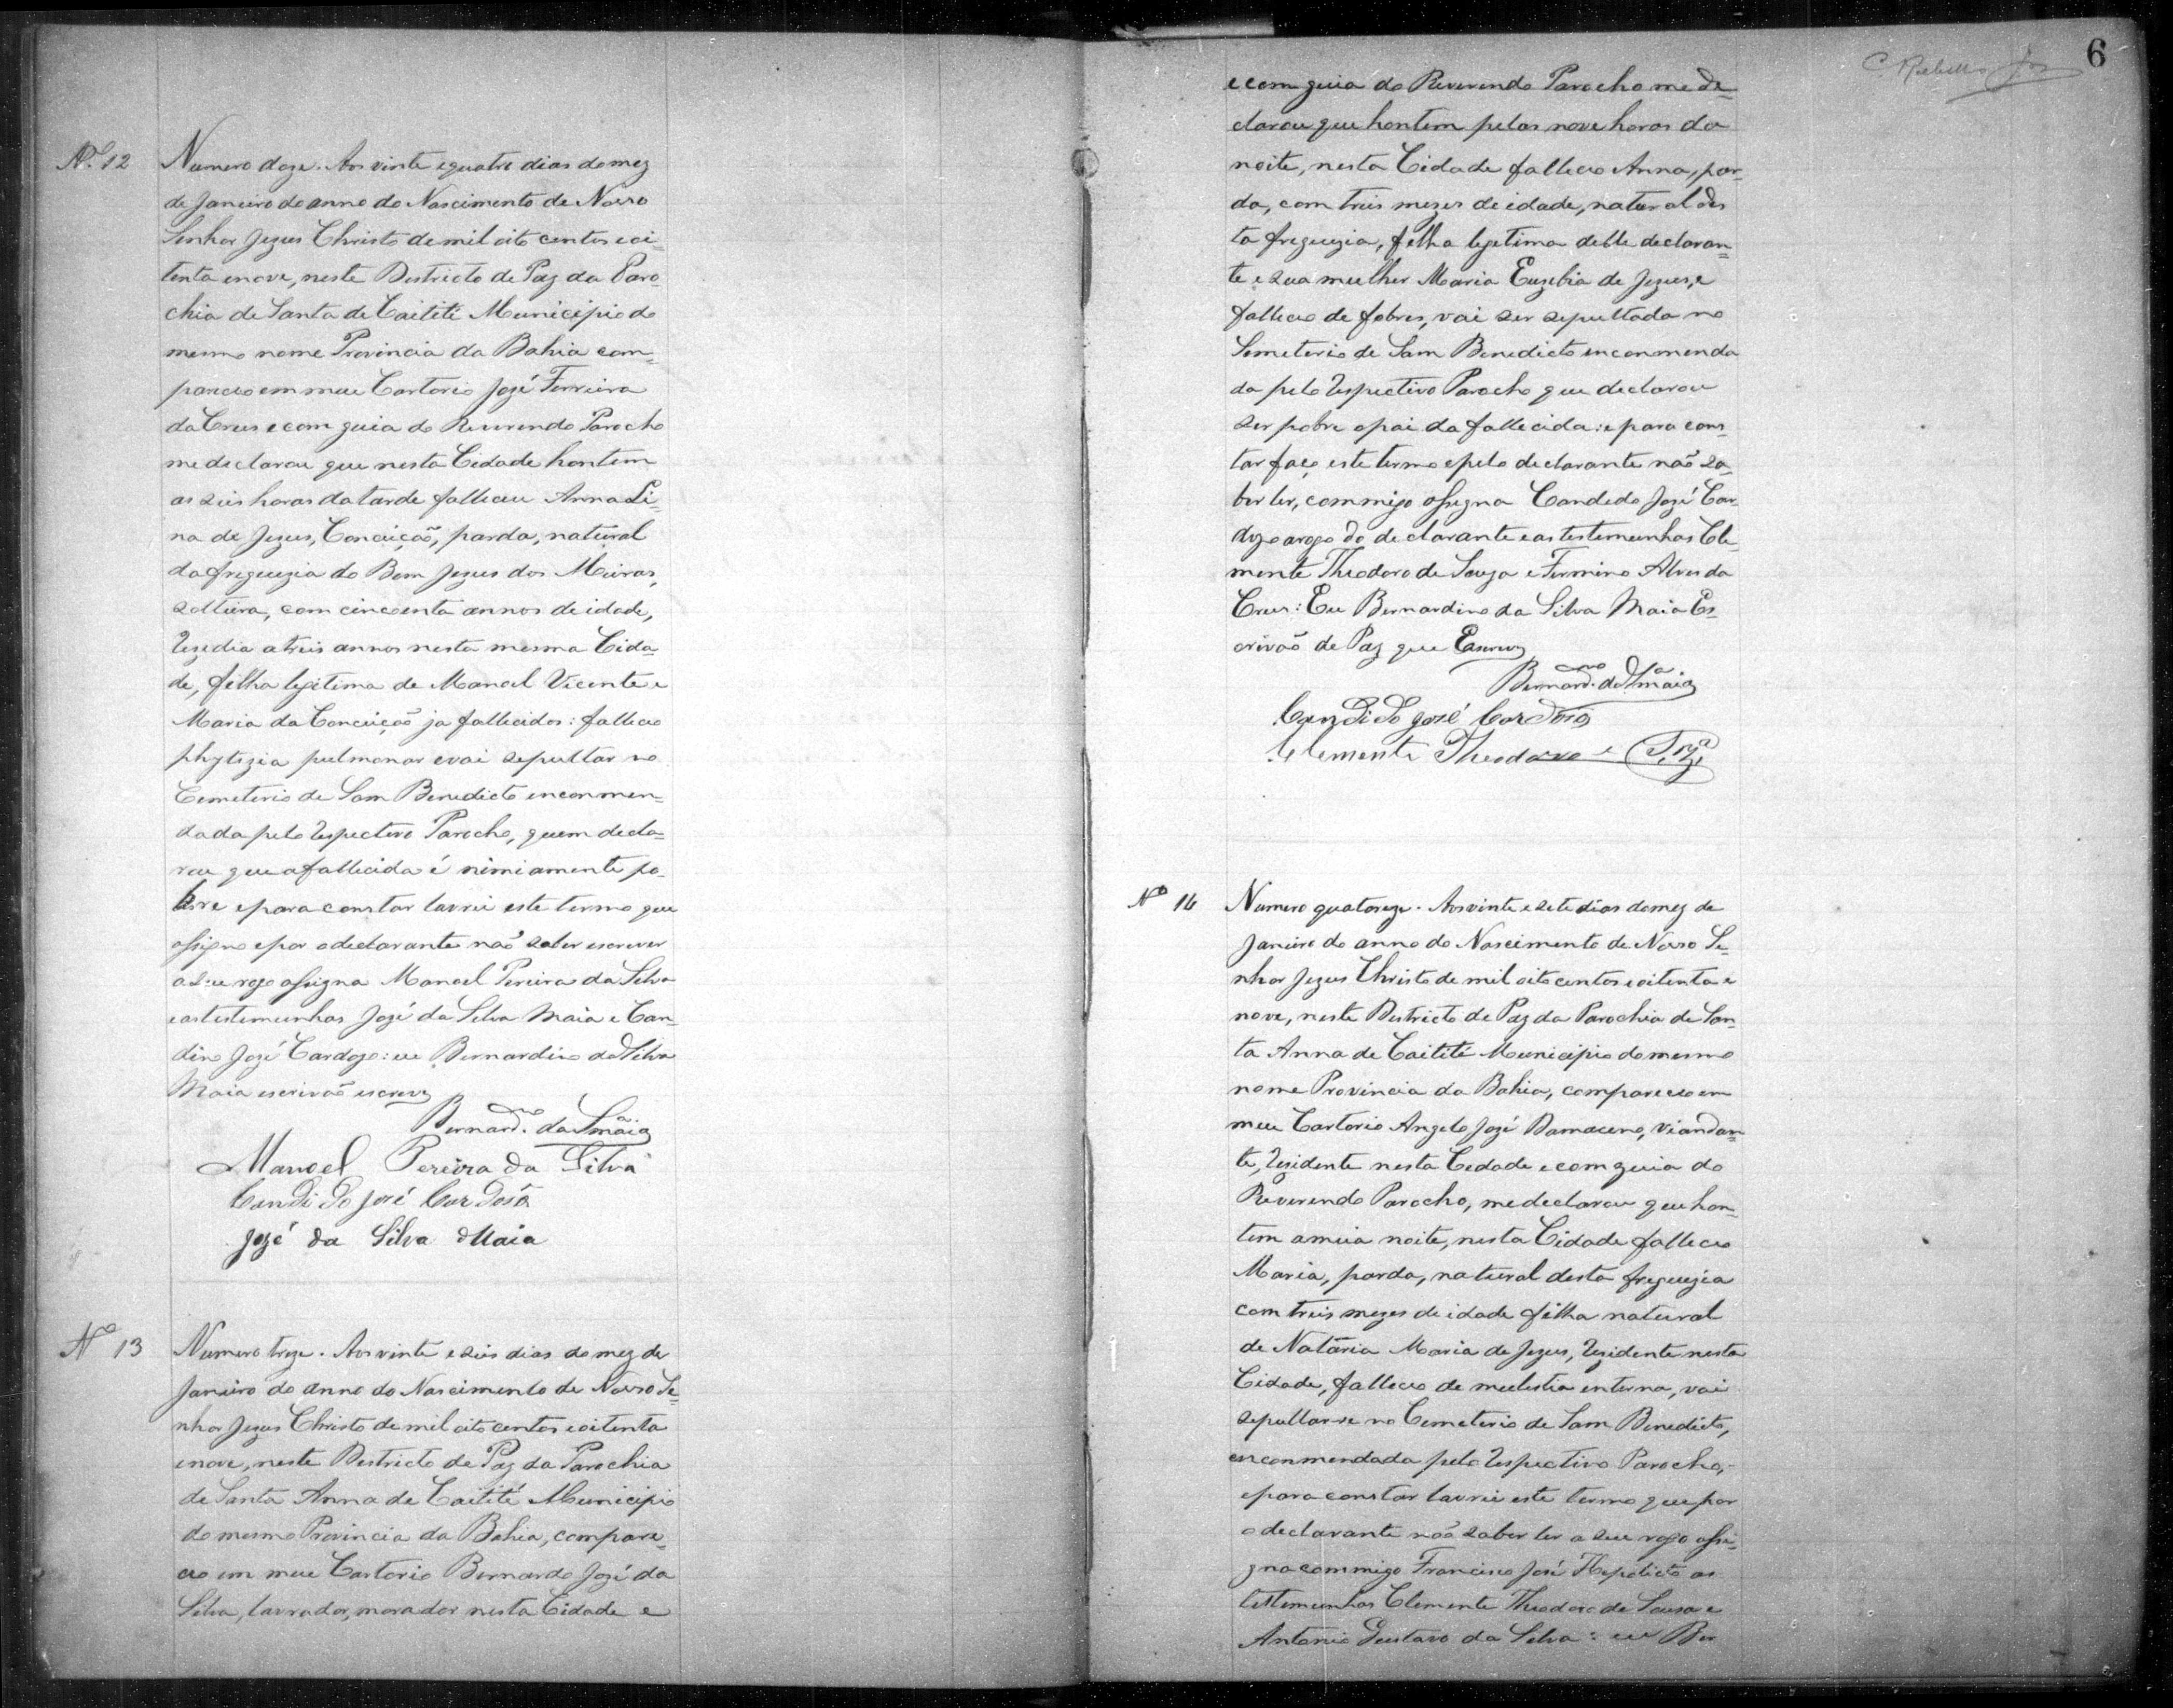 Nº 12
Numero doze. Aos vinte e quatro dias do mez
de Janeiro do anno do Nascimento de Nosso
Senhor Jezus Christo de mil oito centos e oi-
tenta e nove, neste Destricto de Paz da Paro-
chia de Santa de Caitité Municipio do
mesmo nome Provincia da Bahia com-
pareceo em meu Cartorio José Ferreira
da Crus e com guia do Reverendo Parocho
me declarou que nesta Cidade hontem
as seis horas da tarde falleceu Anna Li-
na de Jezus, Conceição, parda, natural
da freguezia do Bom Jezus dos Meiras,
solteira, com cincoenta annos de idade,
rezedia a treis annos nesta mesma Cida-
de, filha legitima de Manoel Vicente e
Maria da Conceição ja fallecidos: falleceo
phytizia pulmonar e vai sepultar no
Cemeterio de Sam Benedicto enconmen-
dada pelo respectivo Parocho, quem decla-
rou que a fallecida é nimiamente po-
bre e para constar lavrei este termo que
assigno e por o declarante não saber escrever
a seu rogo assigna Manoel Pereira da Silva
e as testemunhas José da Silva Maia e Can-
dino José Cardozo: eu Bernardino da Silva
Maia escrivão escrevy
Bernard.no da S.a Maia
Manoel Pereira da Silva
Candido José Cardoso
José da Silva Maia
Nº 13
Numero treze. Aos vinte e seis dias do mez de
Janeiro do anno do Nascimento de Nosso Se-
nhor Jezus Christo de mil oito centos e oitenta
e nove, neste Destricto de Paz da Parochia
de Santa Anna de Caitité Municipio
do mesmo Provincia da Bahia, compare-
ceo em meu Cartorio Bernardo José da
Silva, lavrador, morador nesta Cidade e
6
C. Rabello
e com guia do Reverendo Parocho me de-
clarou que hontem pelas nove horas da
noite, nesta Cidade falleceo Anna, par-
da, com treis mezes de idade, natural des
ta freguezia, filha legetima delle declaran-
te e sua mulher Maria Euzebia de Jezus, e
falleceo de febres, vai ser sepultada no
Semeterio de Sam Benedicto enconmenda
da pelo respectivo Parocho que declarou
ser pobre o pai da fallecida: e para cons-
tar faço este termo e pelo declarante não sa-
ber ler, commigo assigna Candedo José Car-
dozo arogo do declarante e as testemunhas Cle-
mente Theodoro de Souza e Fermino Alves da
Crus: Eu Bernardino da Silva Maia Es-
crivão de Paz que Escrevy
Bernard.no da S.a Maia
Candido José Cardoso
Clemente Theodoro
Nº 14
Numero quatorze. Aos vinte e sete dias do mez de
Janeiro do anno do Nascimento de Nosso Se-
nhor Jezus Christo de mil oito centos e oitenta e
nove, neste Destricto de Paz da Parochia de San-
ta Anna de Caitité Municipio do mesmo
nome Provincia da Bahia, compareceo em
meu Cartorio Angelo José Damaceno, viandan-
te, rezidente nesta Cedade e com guia do
Reverendo Parocho, me declarou que hon-
tem a meia noite, nesta Cidade falleceo
Maria, parda, natural desta freguezia
com treis mezes de idade filha natural
de Natária Maria de Jezus, rezidente nesta
Cidade, falleceo de mulestia enterna, vai
sepultar-se no Cemeterio de Sam Benedicto,
enconmendada pelo respectivo Parocho,
e para constar lavrei este termo que por
o declarante não saber ler a seu rogo assi-
gna commigo Francisco José as
testemunhas Clemente Theodoro de Sousa e
Antonio Gustavo da Silva: eu Ber